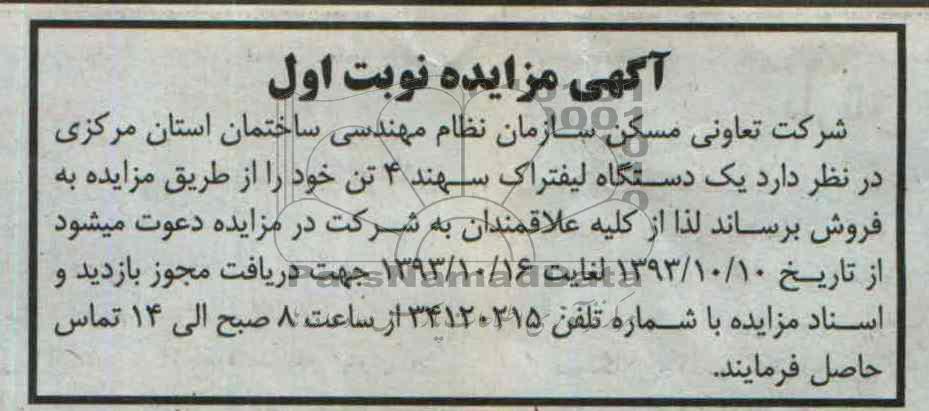 آگهی مزایده نوبت اول
شرکت تعاونی مسکن سازمان نظام مهندسی ساختمان استان مرکزی
در نظر دارد یک دستگاه لیفتراک سهند ۴ تن خود را از طریق مزایده به
فروش برساند لذا از کلیه علاقمندان به شرکت در مزایده دعوت میشود
از تاریخ ۱۳۹۳/۱۰/۱۰ لغایت ۱۳۹۳/۱۰/۱۶ جهت دریافت مجوز بازدید و
ParsNamadData
اسناد مزایده با شماره تلفن ۳۴۱۲۰۲۱۵ از ساعت ۸ صبح الی ۱۴ تماس
حاصل فرمایند.